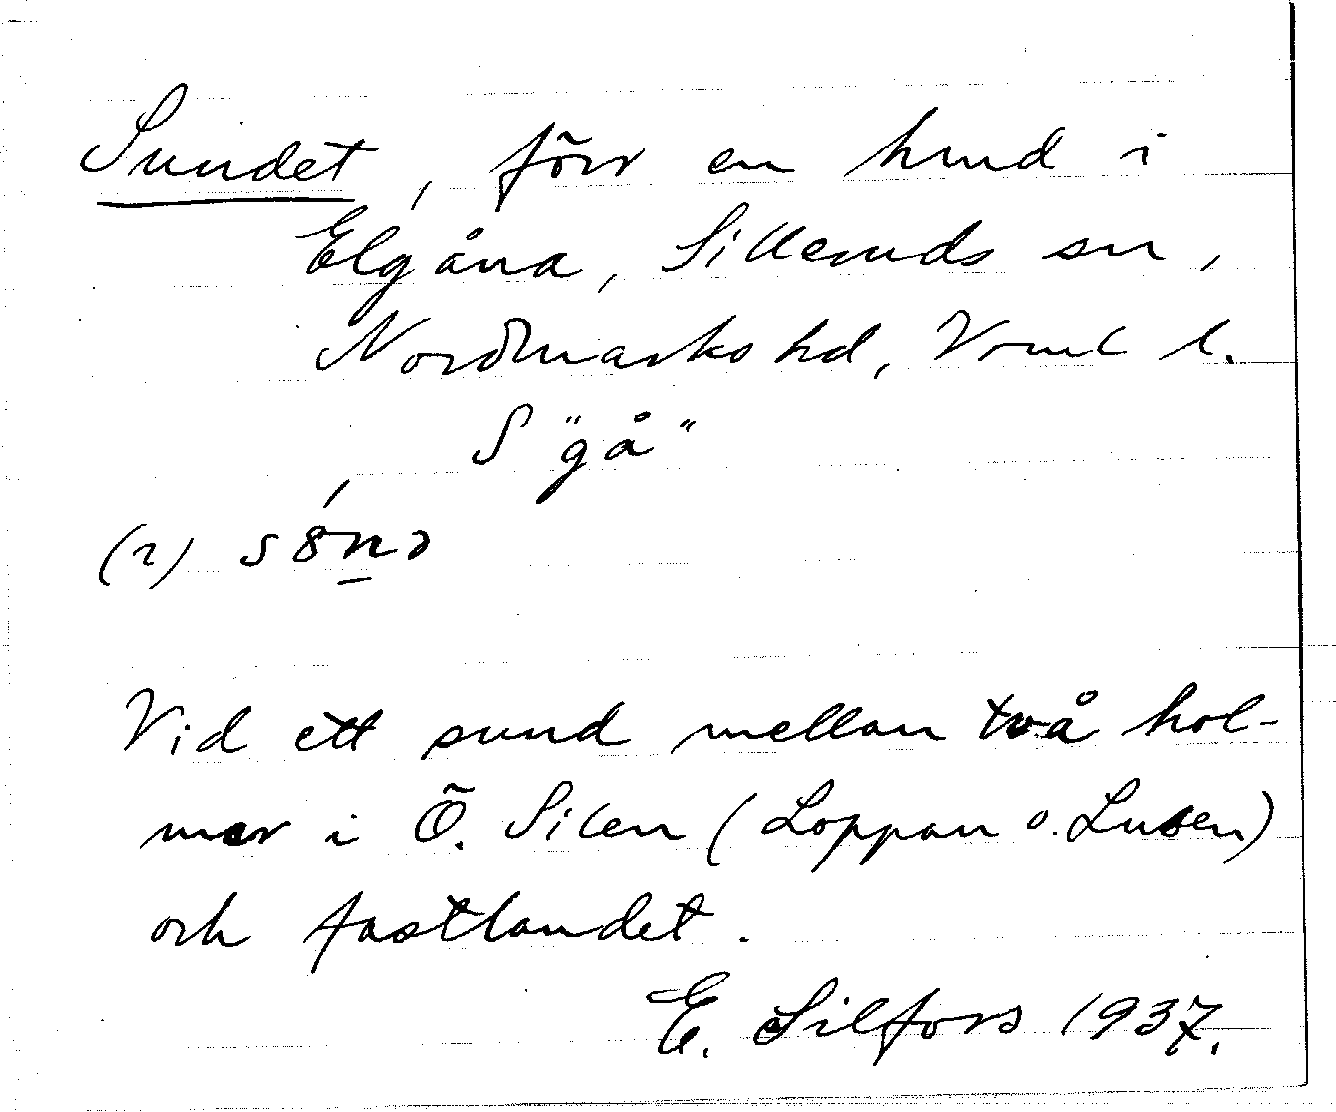 Sundet, förr en hmd i
Elgåna, Silleruds sn,
Nordmarks hd, Vrml l.
S "gå"
(2) s8́n̲ə
Vid ett sund mellan två hol-
mar i Ö. Silen (Loppan o. Lusen)
och fastlandet.
E. Silfors 1937.